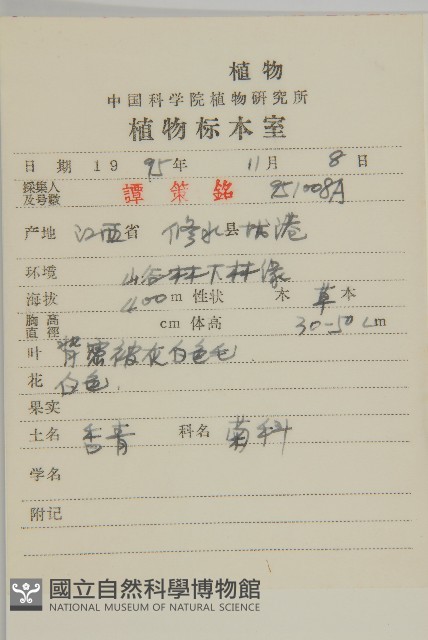 植物
中国科学院植物研究所
植物标本室
日期 1995年 11月 8日
採集人及号数 譚策銘 951008A
产地 江西省 修水县 港
环境 山谷林下林缘
海拔 400m 性状 木 草本
胸高直徑 cm 体高 30-50cm
叶 背密被灰白色毛
花 白色.
果实
土名 香青 科名 菊科
学名
附记
國立自然科學博物館
NATIONAL MUSEUM OF NATURAL SCIENCE